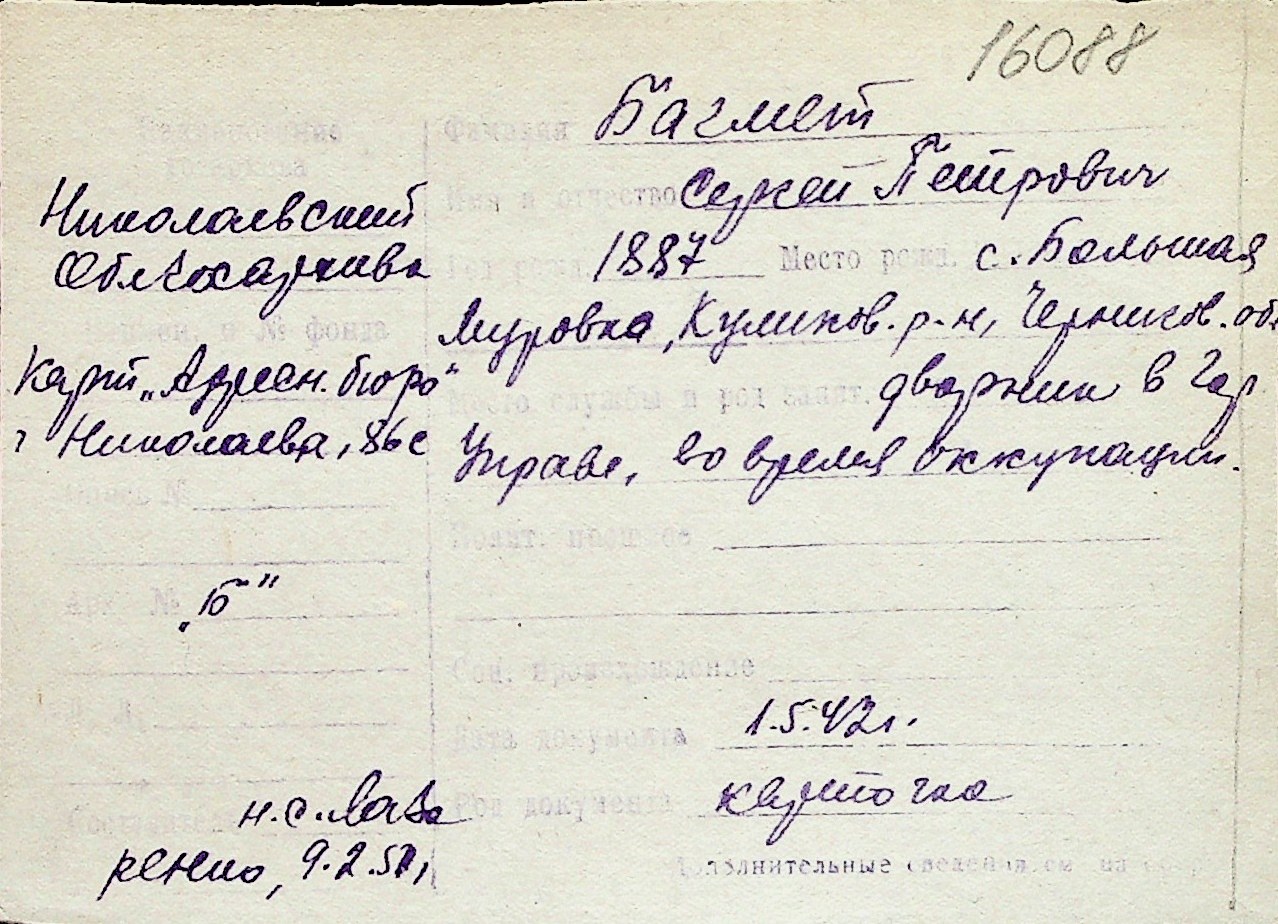 16088
Наименование
госархива
Николаевский
Облгосархива
наимен. и № фонда
Карт. „Адресн. бюро"
г Николаева, 86с
опись №
арх. №
„Б"
п. л.
Составитель н.с. Лавре
ренко, 9.2.51г
Фамилия Багмет
Имя и отчество Сергей Петрович
Год рожд. 1887 Место рожд. с. Большая
Муровка, Куликов. р-н, Чернигов. обл
Место службы и род занят. дворник в Гор
Управе, во время оккупации.
Полит. прошлое
Соц. происхождение
Дата документа 1.5.42г.
Род документа карточка
Дополнительные сведения см. на обор.